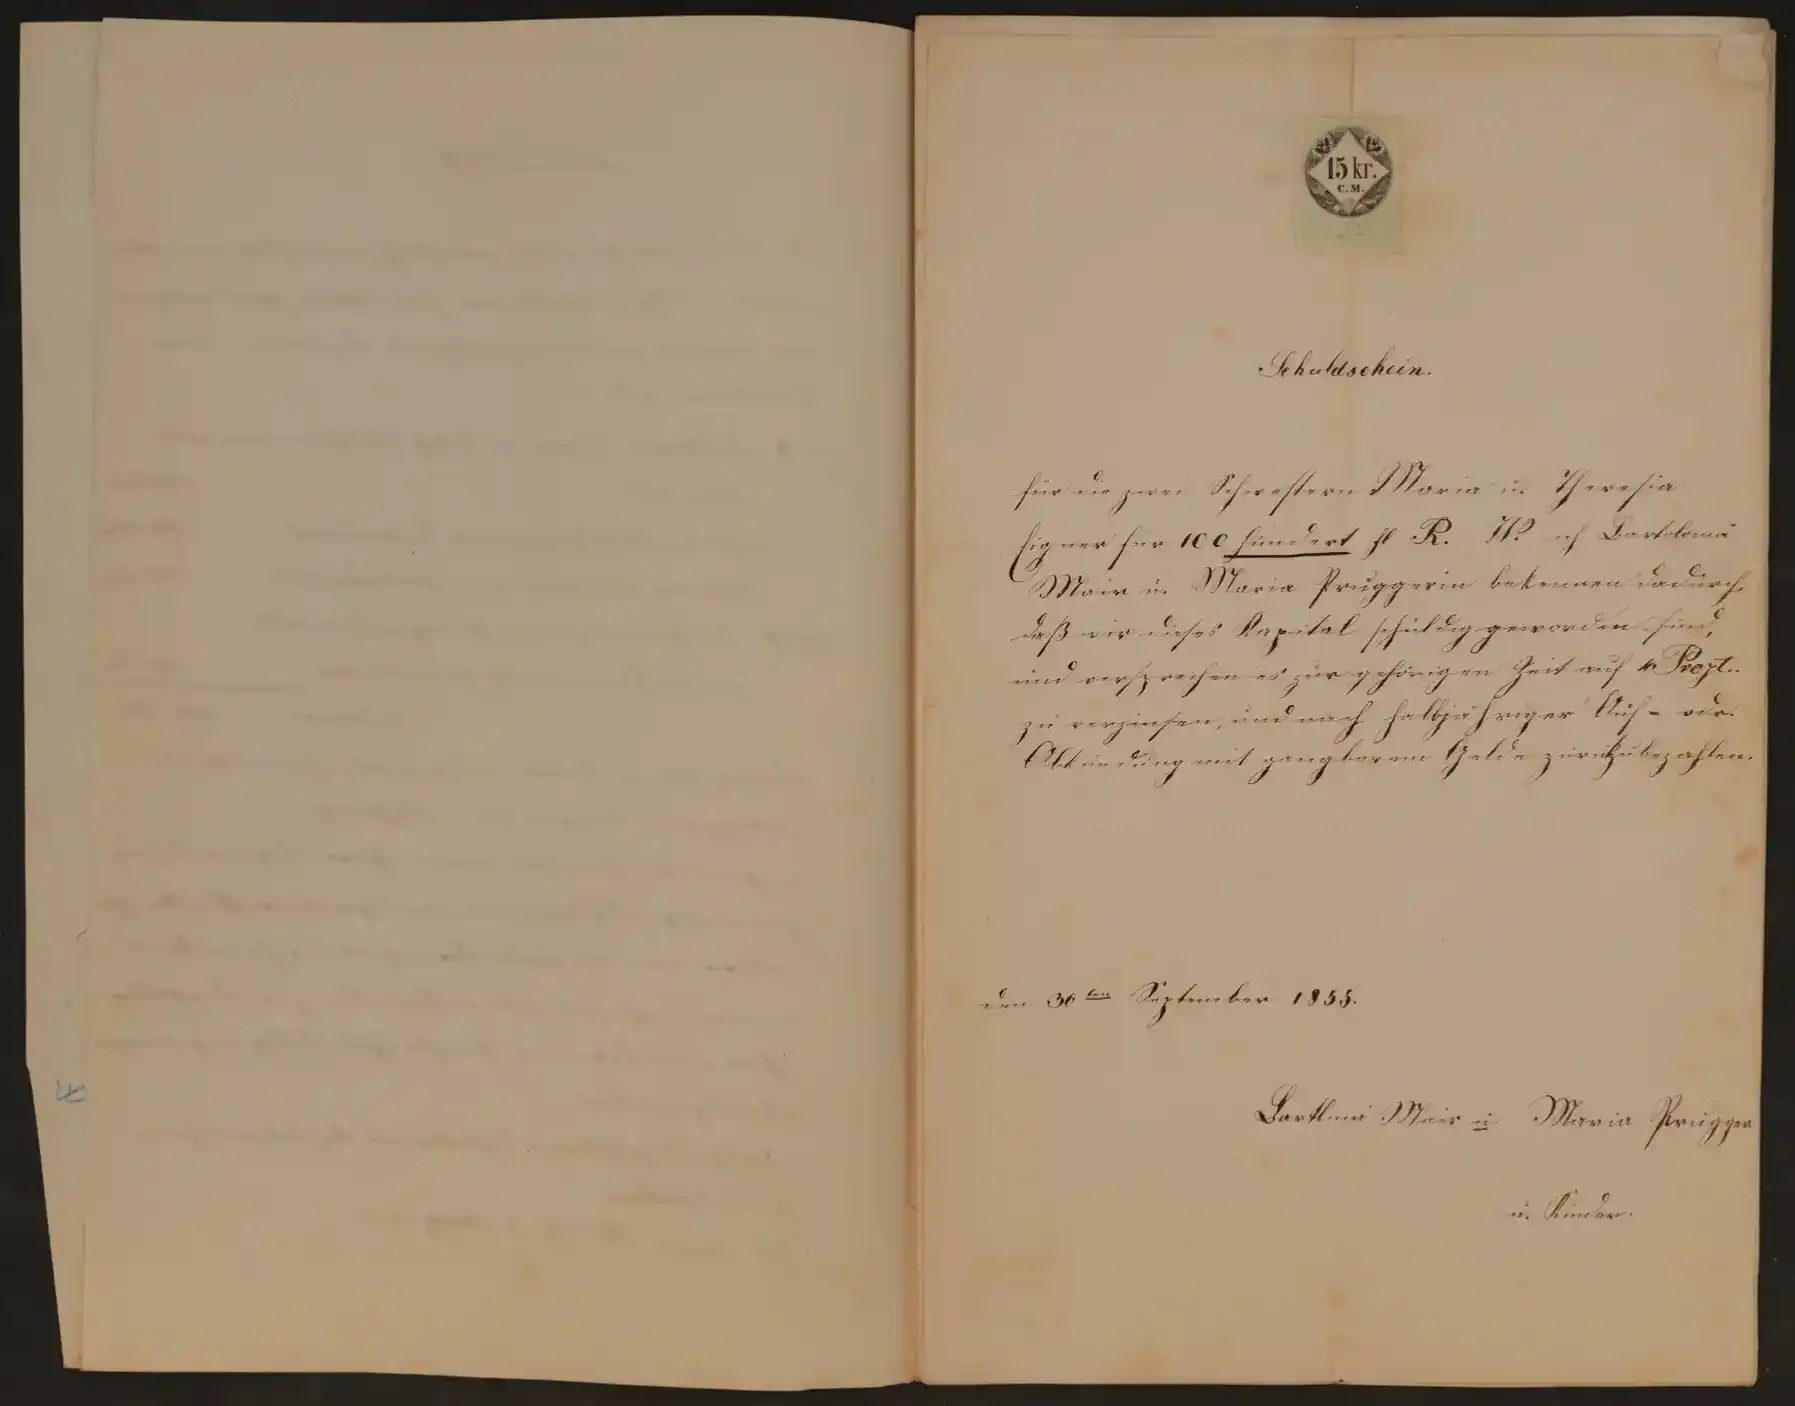 15 kr.
C. M.
Schuldschein.
für die zwei Schwestern Maria u. Theresia
Eigner für 100 hundert fl R. W. ich Bartolomä
Mair u. Maria Pruggerin bekennen dadurch
daß wir dieses Kapital schuldig geworden sind,
und versprechen es zur gehörigen Zeit auf 4 Prozt..
zu verzinsen, und nach halbjähriger Auf- odr.
Abkündung mit gangbarem Gelde zurükzubezahlen.
den 30ten September 1855.
Bartlmä Mair u. Maria Prugger
u. Kinder.